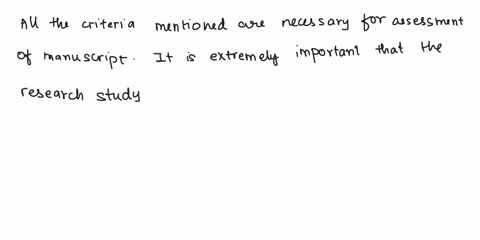 All the criteria mentioned are necessary for assessment
of manuscript. It is extremely important that the
research study